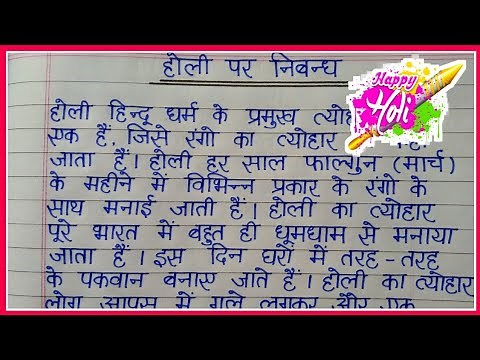 होली पर निबन्ध
Happy
Holi
होली हिन्दू धर्म के प्रमुख
एक हैं, जिसे रंगो का त्योहार
जाता हैं। होली हर साल फाल्गुन (मार्च)
के महीने में विभिन्न प्रकार के रंगो के
साथ मनाई जाती हैं। होली का त्योहार
पूरे भारत में बहुत ही धूमधाम से मनाया
जाता हैं। इस दिन घरों में तरह-तरह
के पकवान बनाए जाते हैं। होली का त्योहार
लोग आपस में गले लगकर और एक